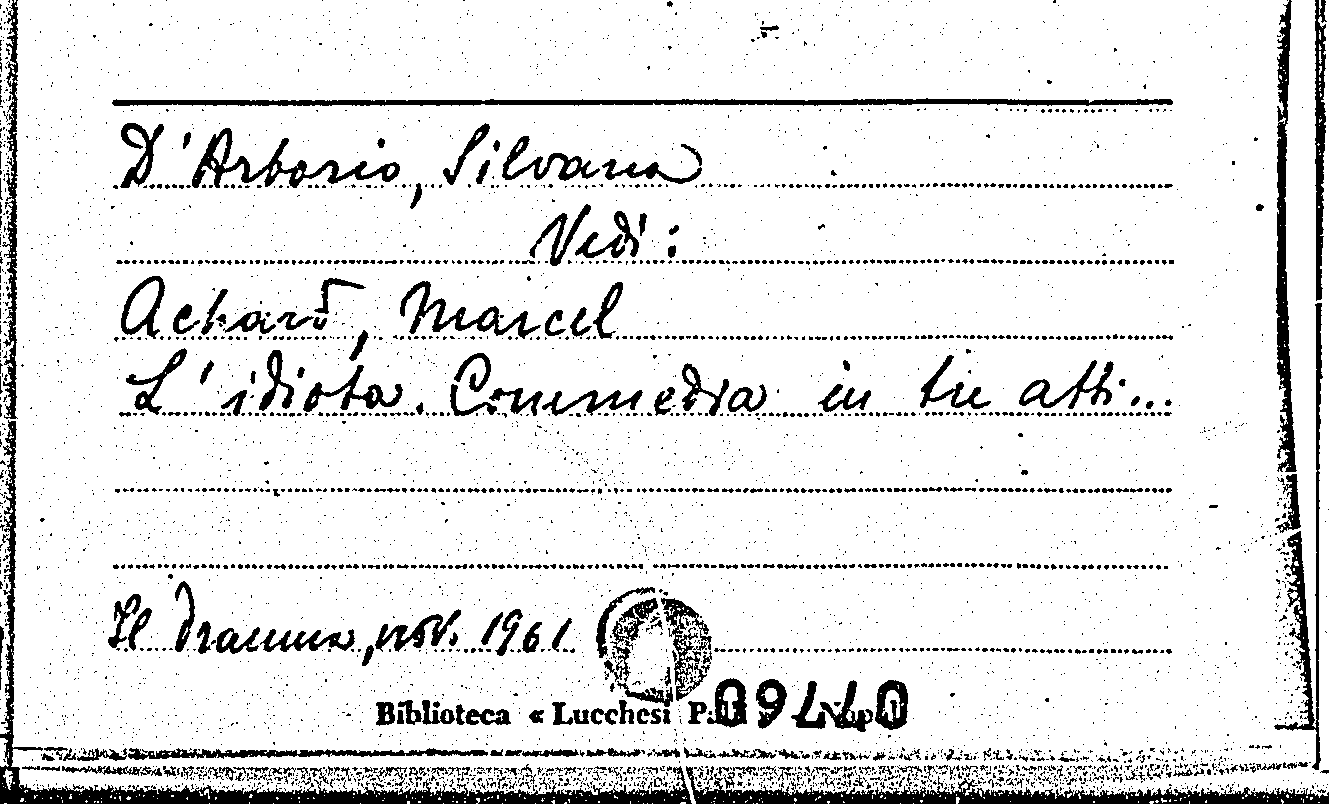 D'Arborio, Silvana
Vedi:
Achard, Marcel
L'idiota. Commedia in tre atti...
Il dramma, nov. 1961
Biblioteca « Lucchesi